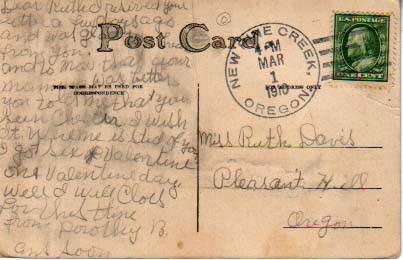 Dear Ruth I received your
letter a few days ago
and was glad
from you
and to hear that your
mama was better
you told that you
seen I wish
I got six Valentines
on Valentine day
Well I will Close
For this time
From Dorothy B.
ans soon
Post Card
THIS SPACE MAY BE USED FOR
CORRESPONDENCE
ONLY
NEW PINE CREEK,
MAR
1
1910
OREGON
U.S. POSTAGE
ONE CENT
Miss Ruth Davis
Pleasant Hill
Oregon